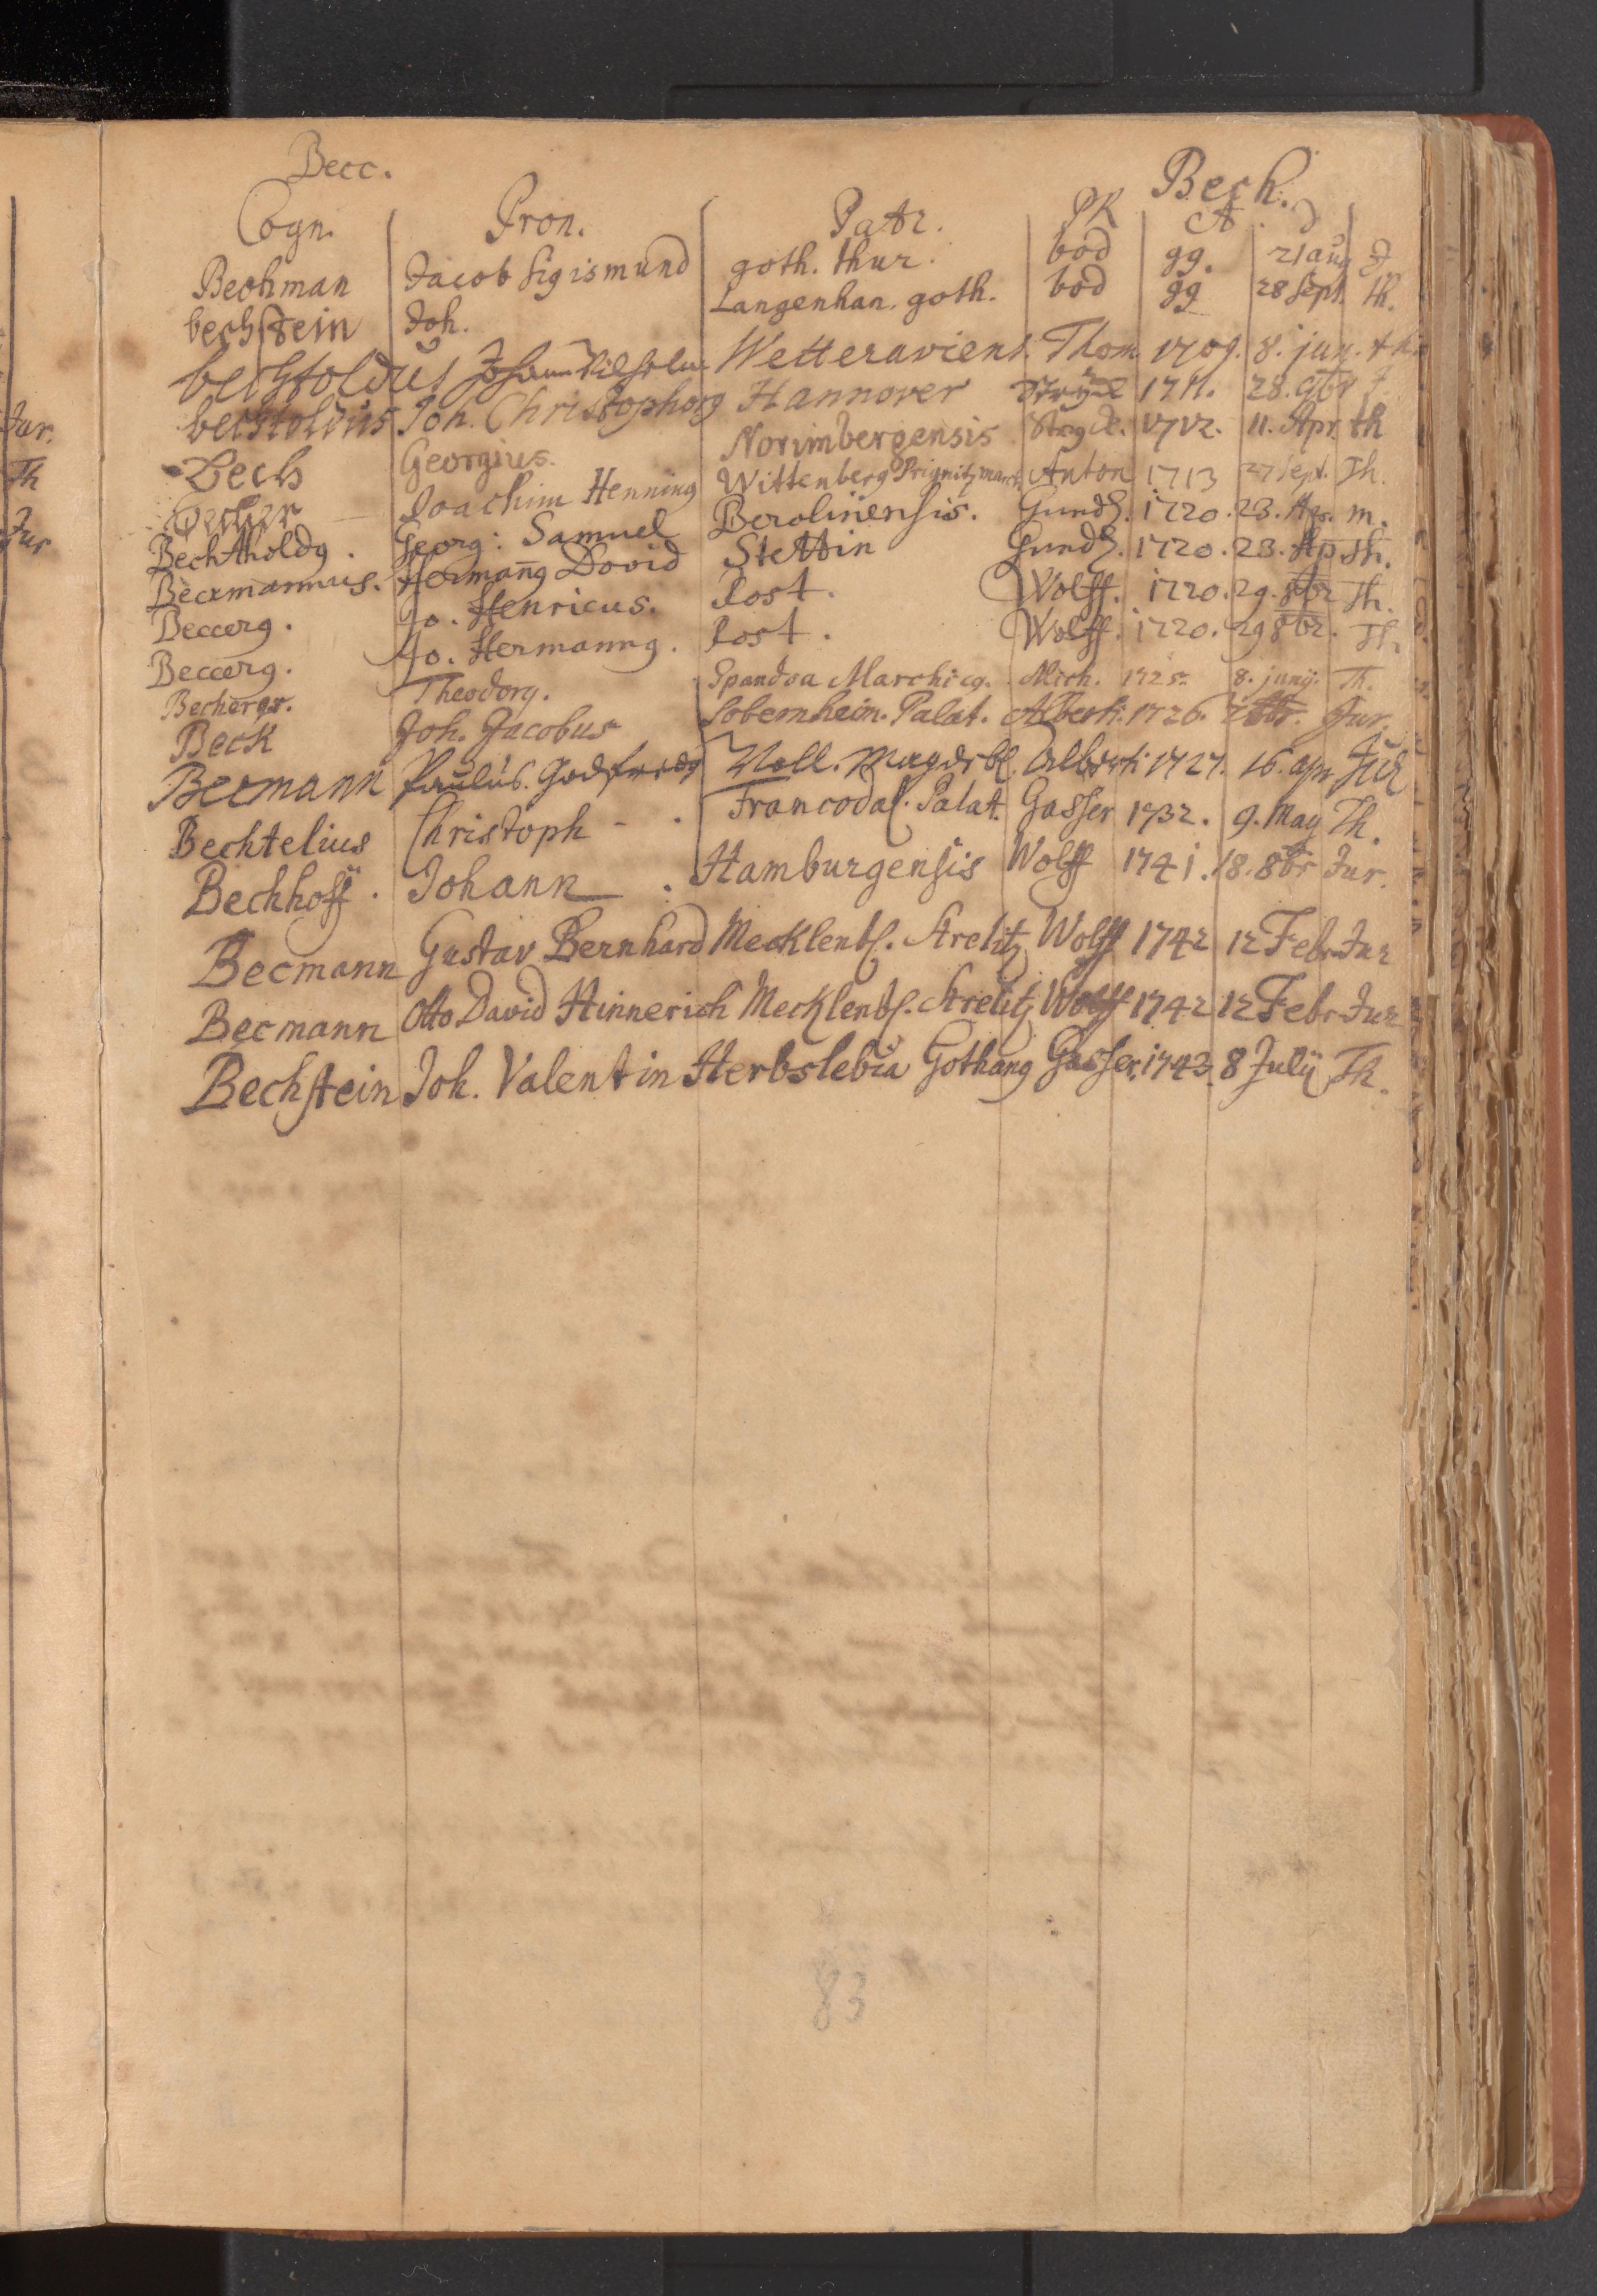 Becc. Bech.
Cogn. Pron. Patr. PR A. D
Bechman Jacob Sigismund goth. thur. bod 99. 21 aug J
bechstein Joh. Langenhan. goth. bod 99 28 Sept. th.
bechtoldus Johann Wilhelm Wetteraviens. Thom. 1709. 8. jun. th
bechtoldus Joh. Christophorg Hannover Stryck 1711. 28. 9br J
Bech Georgius. Norimbergensis Stryck. 1712. 11. Apr. th
Becker Joachim Henning Wittenberg Prignitz march Anton 1713 27 Sept. Th.
Bechtholdg. Georg: Samuel Berolinensis. Gundl. 1720. 23. Ap. m.
Becxmannus. Hermang David Stettin Gundl. 1720. 23. Ap Th.
Beccerg. Jo. Henricus. Rost. Wolff. 1720. 29. 8br Th.
Beccerg. Jo. Hermanng. Rost. Wolff. 1720. 29 8br. Th
Becherer. Theodorg. Spandoa Marchicg. Mich. 1725. 8. junij. Th.
Beck Joh. Jacobus Sobernheim. Palat. Alberti. 1726. Jur.
Becmann Paulus. Godfredg Noll. Magdebl. Alberti 1727. 16. apr Jur
Bechtelius Christoph - . Francodal. Palat. Gasser 1732. 9. May Th.
Bechhoff. Johann . Hamburgensis Wolff 1741. 18. 8br Jur.
Becmann Gustav Bernhard Mecklenb. Strelitz Wolff 1742 12 Febr Jur
Becmann Otto David Hinnerich Mecklenb. Strelitz Wolff 1742 12 Febr Jur
Bechstein Joh. Valentin Herbslebia Gothang Gasser. 1743. 8 Julij Th.
83
Jur.
Th
Jur